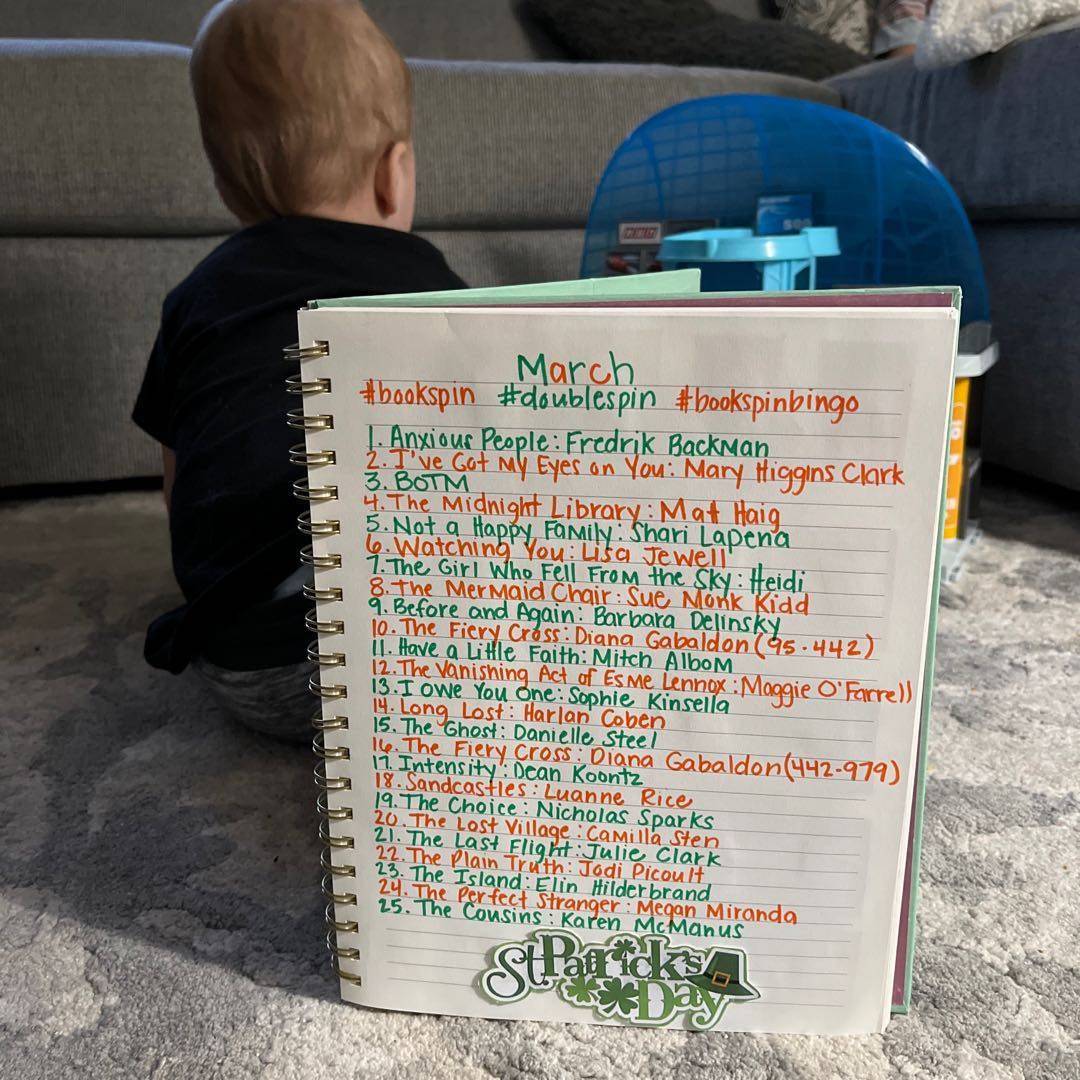 March
#bookspin #doublespin #bookspinbingo
1. Anxious People: Fredrik Backman
2. I've Got My Eyes on You: Mary Higgins Clark
3. BOTM
4. The Midnight Library: Mat Haig
5. Not a Happy Family: Shari Lapena
6. Watching You: Lisa Jewell
7. The Girl Who Fell From the Sky: Heidi
8. The Mermaid Chair: Sue Monk Kidd
9. Before and Again: Barbara Delinsky
10. The Fiery Cross: Diana Gabaldon (95-442)
11. Have a Little Faith: Mitch Albom
12. The Vanishing Act of Esme Lennox: Maggie O'Farrell
13. I Owe You One: Sophie Kinsella
14. Long Lost: Harlan Coben
15. The Ghost: Danielle Steel
16. The Fiery Cross: Diana Gabaldon (442-979)
17. Intensity: Dean Koontz
18. Sandcastles: Luanne Rice
19. The Choice: Nicholas Sparks
20. The Lost Village: Camilla Sten
21. The Last Flight: Julie Clark
22. The Plain Truth: Jodi Picoult
23. The Island: Elin Hilderbrand
24. The Perfect Stranger: Megan Miranda
25. The Cousins: Karen McManus
St Patrick's
Day